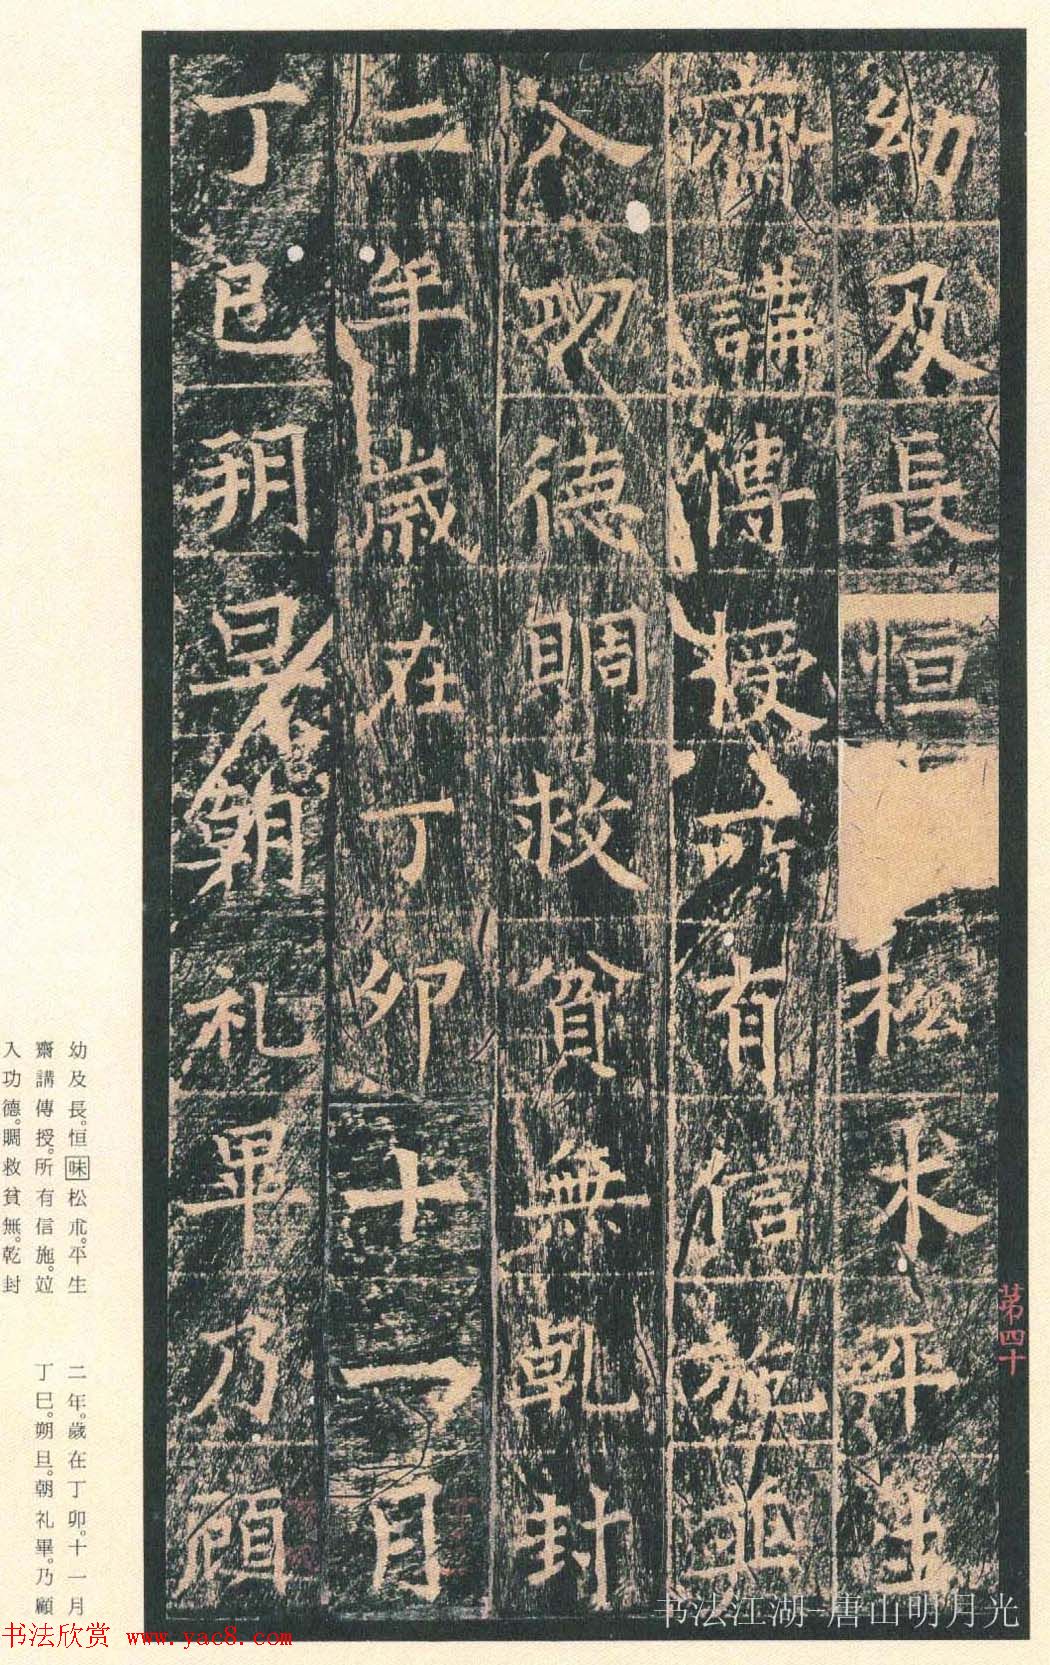 幼及長恒松朮平生
齋講傳授所有信施並
入功德賙救貧無乾封
二年歲在丁卯十一月
丁巳朔旦朝礼畢乃顧
第四十
幼及長。恒味松朮。平生
齋講傳授。所有信施。竝
入功德。賙救貧無。乾封
二年。歲在丁卯。十一月
丁巳。朔旦。朝礼畢。乃顧
书法江湖-唐山明月光
书法欣赏 www.yac8.com